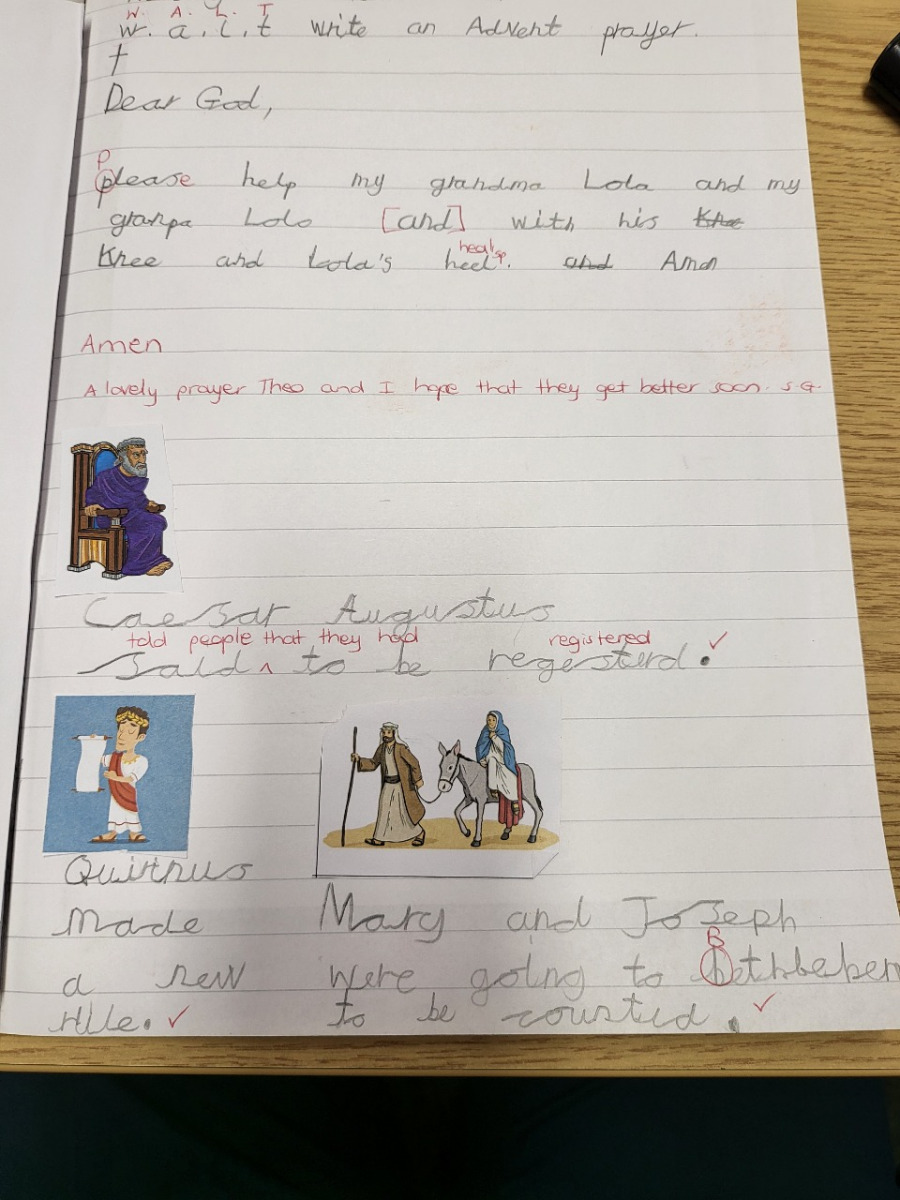 W. A. L. T
w. a. l. t write an Advent prayer.
†
Dear God,
P
please help my grandma Lola and my
granpa Lolo [and] with his Khe
heal sp
Knee and Lola's heel. and Amen
Amen
A lovely prayer Theo and I hope that they get better soon. S.G.
Caesar Augustus
told people that they had registered ✓
said ^ to be regersterd.
Quirnus
made
a new
rule. ✓
Mary and Joseph
B
were going to bethbehem
to be counted. ✓